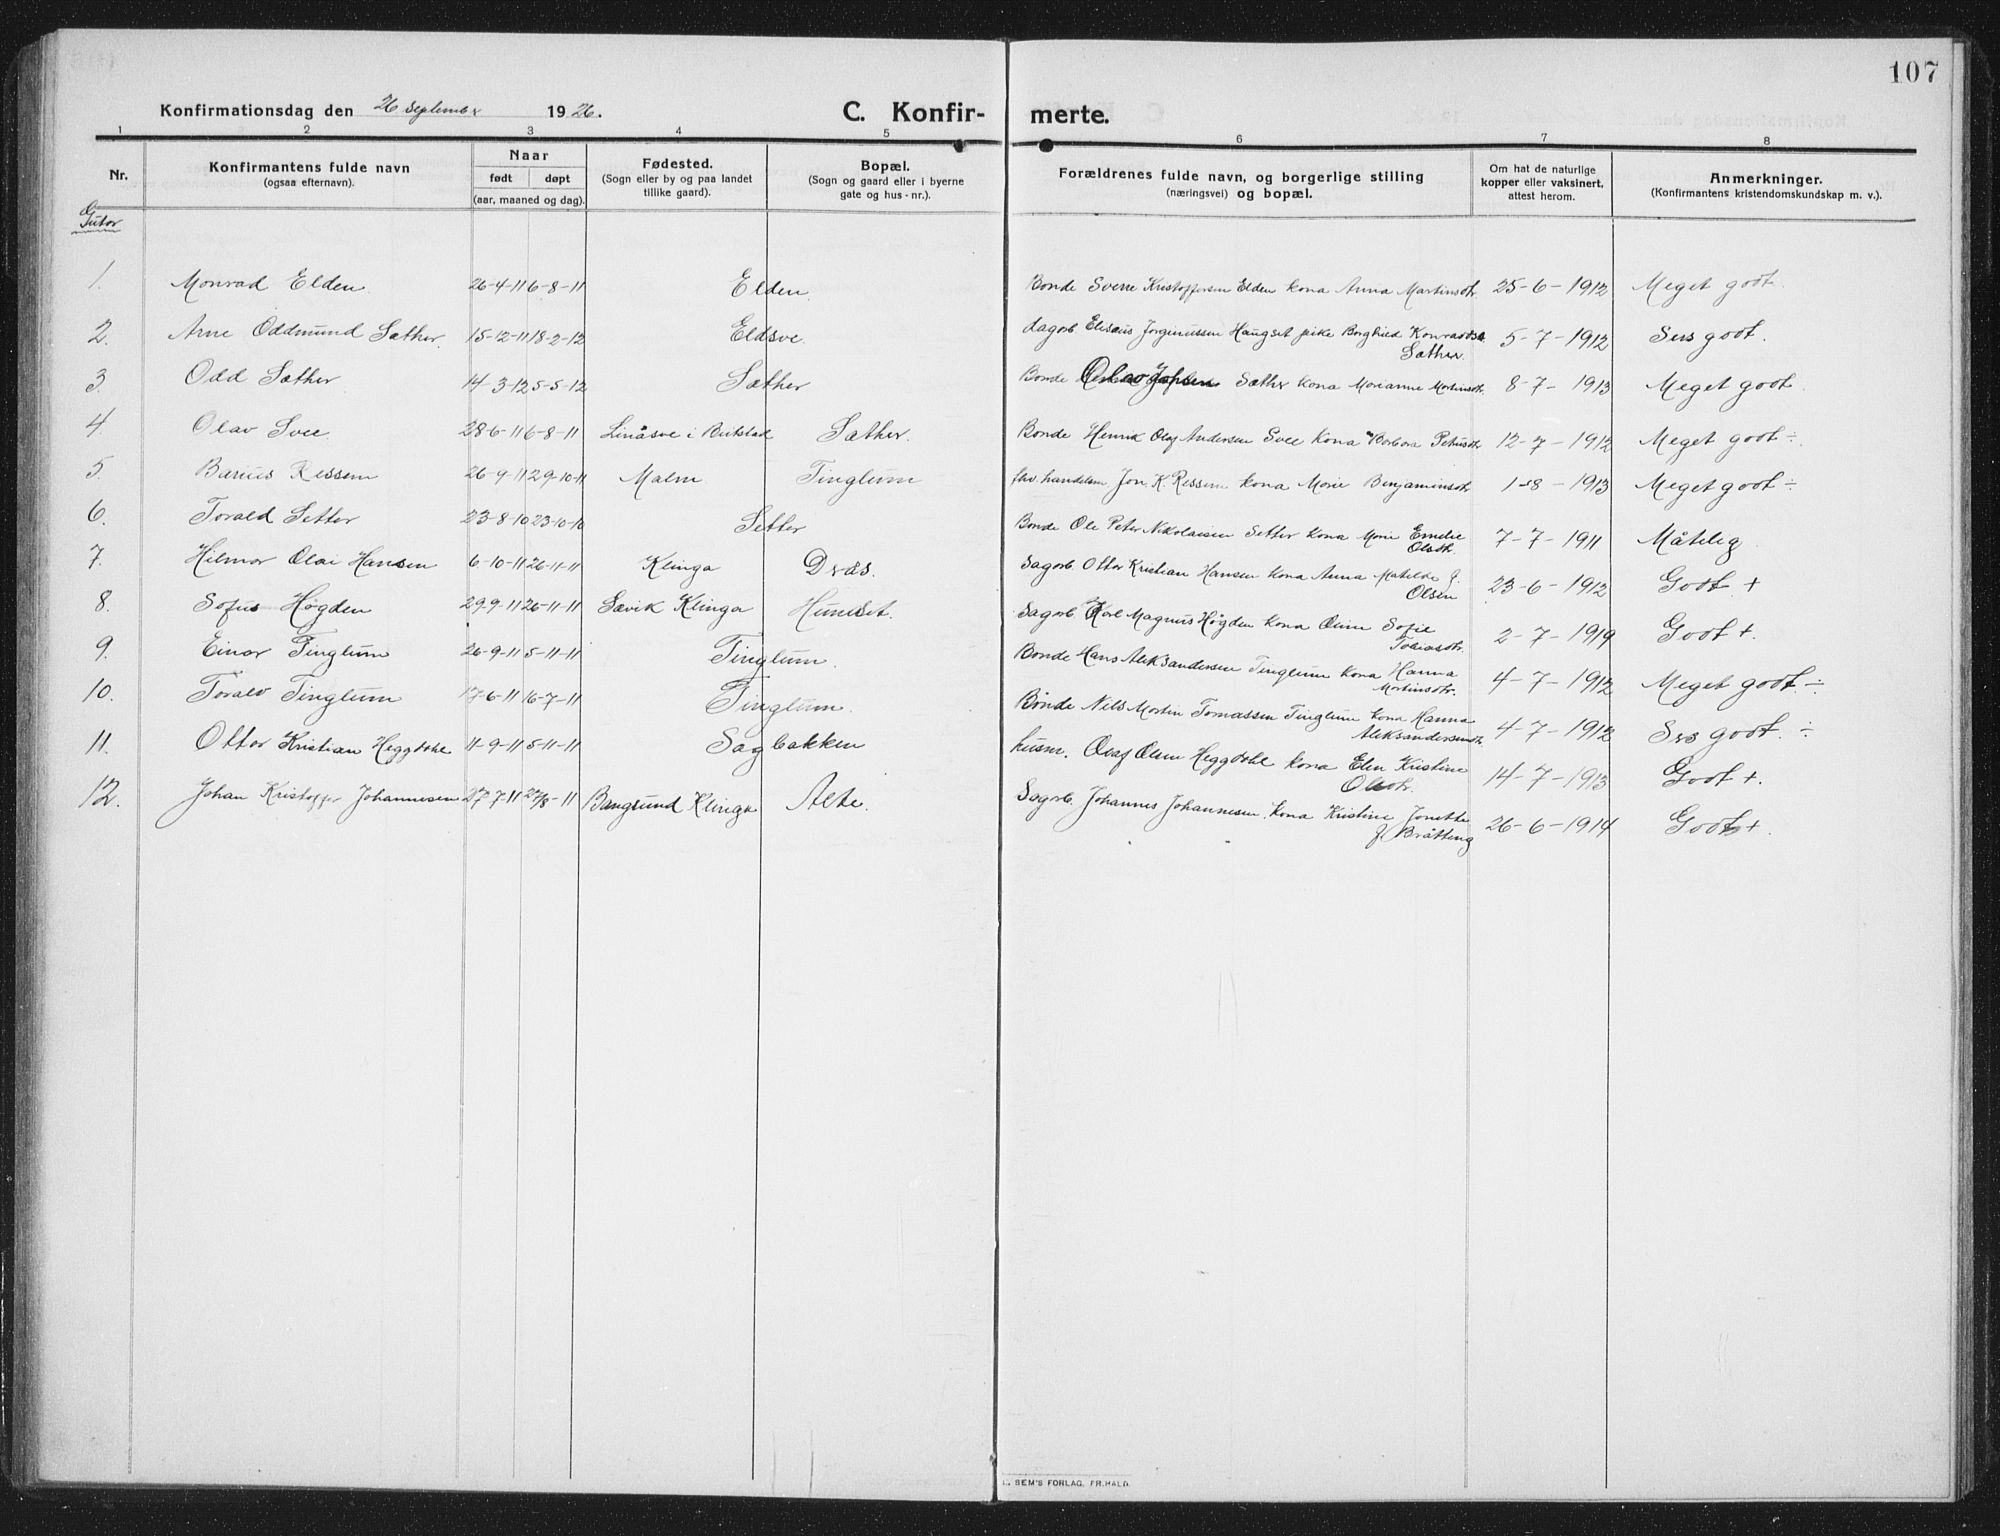 107
Konfirmationsdag den 26 September 1926. C. Konfir- merte.
1 2 3 4 5 6 7 8
Nr. Konfirmantens fulde navn (ogsaa efternavn). Naar født døpt (aar, maaned og dag). Fødested. (Sogn eller by og paa landet tillike gaard). Bopæl. (Sogn og gaard eller i byerne gate og hus-nr.). Forældrenes fulde navn, og borgerlige stilling (næringsvei) og bopæl. Om hat de naturlige kopper eller vaksinert, attest herom. Anmerkninger. (Konfirmantens kristendomskundskap m. v.).
Gutor
1. Monrad Elden 26-4-11 6-8-11 Elden. Bonde Sverre Kristoffersen Elden kona Anna Martinsdtr. 25-6-1912 Meget godt.
2. Arne Oddmund Sæther. 15-12-11 18-2-12 Eldsve. dagarb. Eliseus Jørginussen Haugset pike Borghild Konradsd. Sæther. 5-7-1912 Sers godt.
3. Odd Sæther. 14-3-12 5-5-12 Sæther Bonde Olav Sæther kona Marianne Martinsdtr. 8-7-1913 Meget godt.
4. Olav Svee. 28-6-11 6-8-11 Linåsve i Beitstad Sæther. Bonde Henrik Olaf Andersen Svee kona Barbara Petrusdtr 12-7-1912 Meget godt ÷.
5. Barius Ressem 26-9-11 29-10-11 Malm Tinglum fhv. handelsm. Jon. K. Ressem kona Marie Benjaminsdtr 1-8-1913 Meget godt ÷
6. Torald Setter 23-8-10 23-10-10 Setter Bonde Ole Peter Nikolaisen Setter kona Marie Emelie Olsdtr. 7-7-1911 Måtelig
7. Hilmar Olai Hansen 6-10-11 26-11-11 Klinga Drås. Sagarb. Ottar Kristian Hansen kona Anna Matilde f. Olsen 23-6-1912 Godt +
8. Sofus Høgden 29-9-11 26-11-11 Sævik Klinga Humset. Sagarb. Karl Magnus Høgden kona Oline Sofie Tobiasdtr. 2-7-1919 Godt +.
9. Einar Tinglum 26-9-11 5-11-11 Tinglum. Bonde Hans Aleksandersen Tinglum kona Hanna Martinsdtr. 4-7-1912 Meget godt ÷
10. Toralv Tinglum 17-6-11 16-7-11 Tinglum. Bonde Nils Martin Tomassen Tinglum kona Hanna Aleksandersdtr 4-7-1912 Sers godt. ÷
11. Ottar Kristian Heggdahl 11-9-11 5-11-11 Sagbakken husm. Olaf Olsen Heggdahl kona Elen Kristine Olsdtr. 14-7-1913 Godt +.
12. Johan Kristoffer Johannesen 27-7-11 27/8-11 Bangsund Klinga Alte. Sagarb. Johannes Johannesen. kona Kristine Jonette f. Bråtteng 26-6-1914 Godt +.
SEM'S FORLAG, FR.HALD.